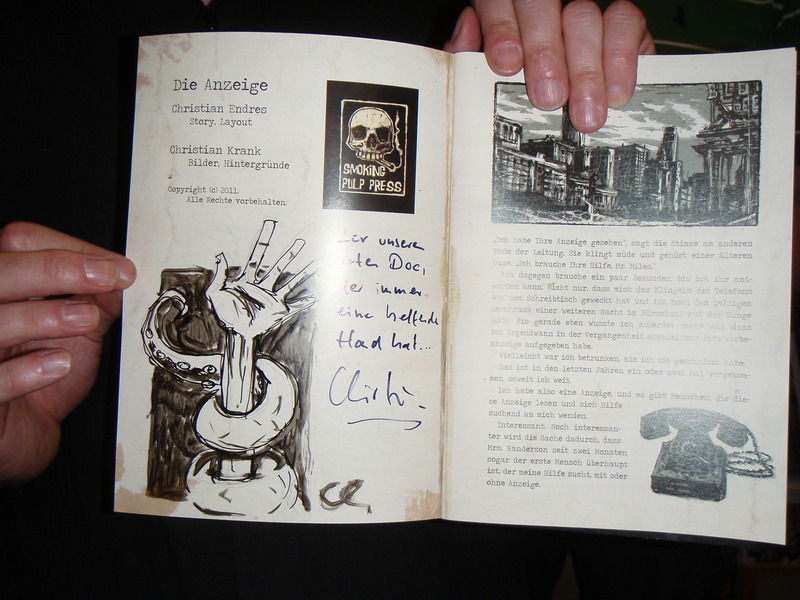 Die Anzeige
Christian Endres
Story, Layout
Christian Krank
Bilder, Hintergründe
Copyright (c) 2011.
Alle Rechte vorbehalten.
SMOKING
PULP PRESS
unseren
Doc,
der immer
eine helfende
Had hat...
„Ich habe Ihre Anzeige gesehen", sagt die Stimme am anderen
Ende der Leitung. Sie klingt müde und gehört einer älteren
Dame. „Ich brauche Ihre Hilfe, Mr. Milen."
Ich dagegen brauche ein paar Sekunden, bis ich ihr ant-
worten kann. Nicht nur, dass mich das Klingeln des Telefons
auf der Schreibtisch geweckt hat und ich noch den pelzigen
Geschmack einer weiteren Nacht im Bürostuhl auf der Zunge
habe. Bis gerade eben wusste ich außerdem nicht mal, dass
ich irgendwann in der Vergangenheit eine Werbe-
anzeige aufgegeben habe.
Vielleicht war ich betrunken, als ich sie geschaltet habe.
Das ist in den letzten Jahren ein oder zwei Mal vorgekom-
men, soweit ich weiß.
Ich habe also eine Anzeige, und es gibt Menschen, die die-
se Anzeige lesen und sich Hilfe
suchend an mich wenden.
Interessant. Noch interessan-
ter wird die Sache dadurch, dass
Mrs. Handerson seit zwei Monaten
sogar der erste Mensch überhaupt
ist, der meine Hilfe sucht, mit oder
ohne Anzeige.